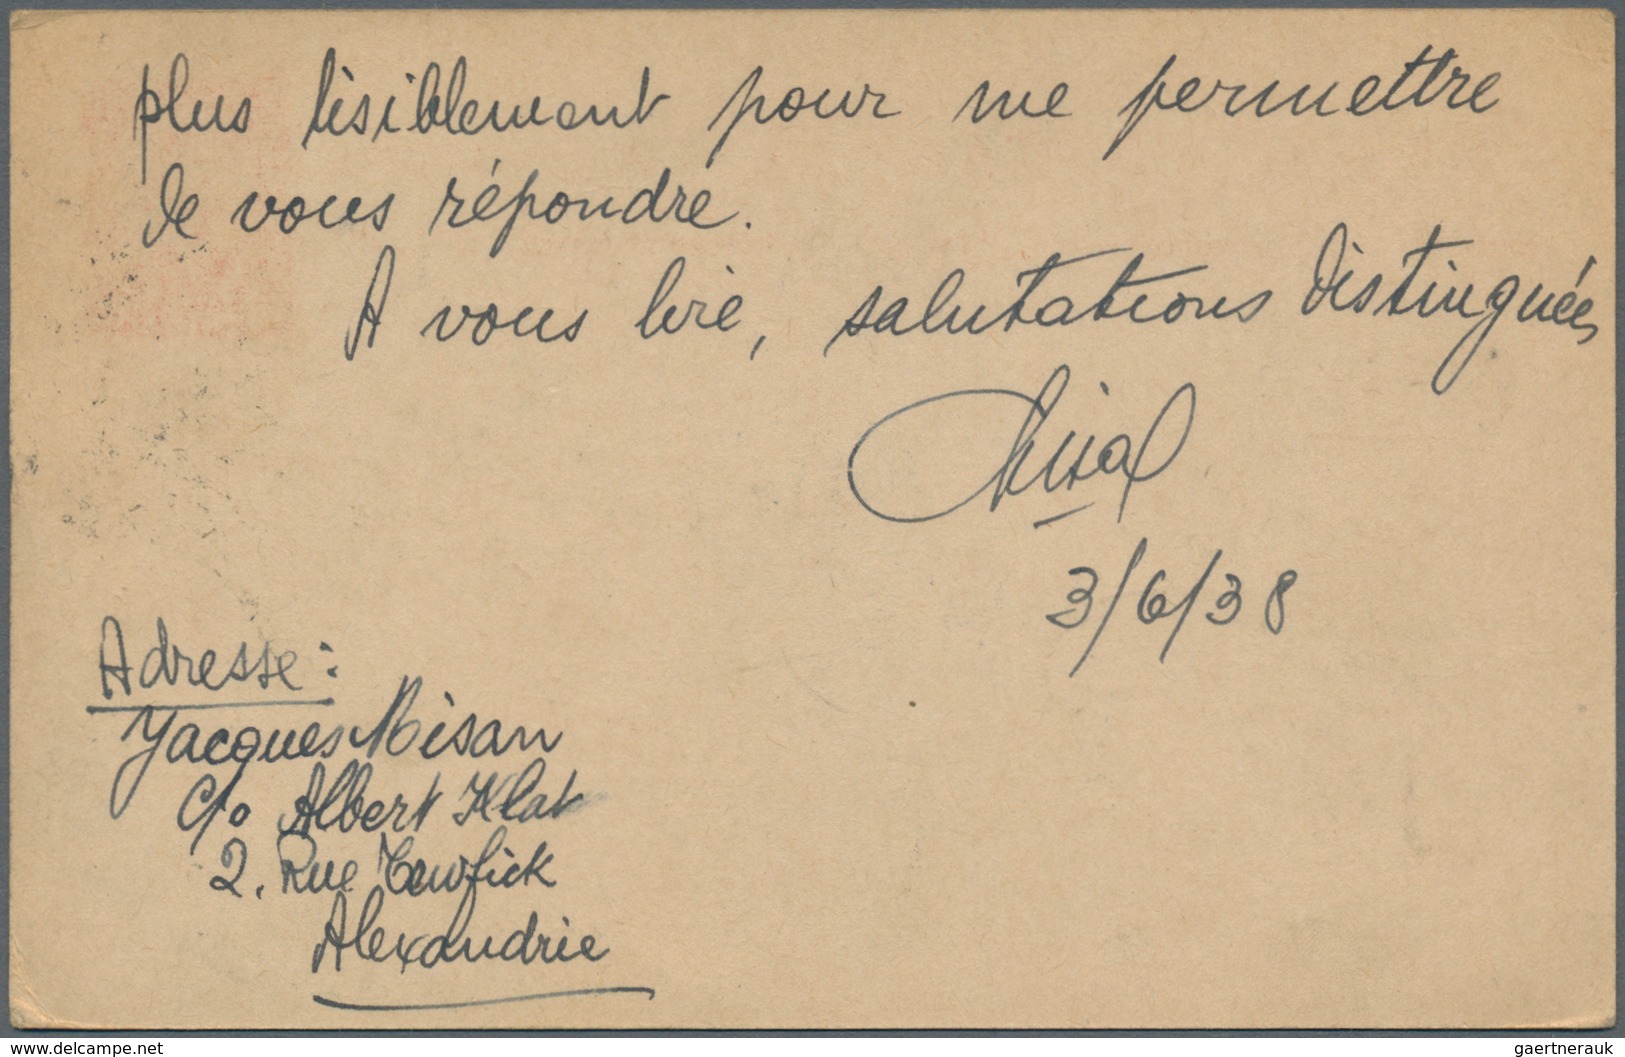 plus lisiblement pour me permettre
de vous répondre.
A vous lire, salutations distinguées
3/6/38
Adresse:
Jacques Misan
c/o Albert Klat
2. Rue Tewfick
Alexandrie
delcampe.net
gaertnerauk